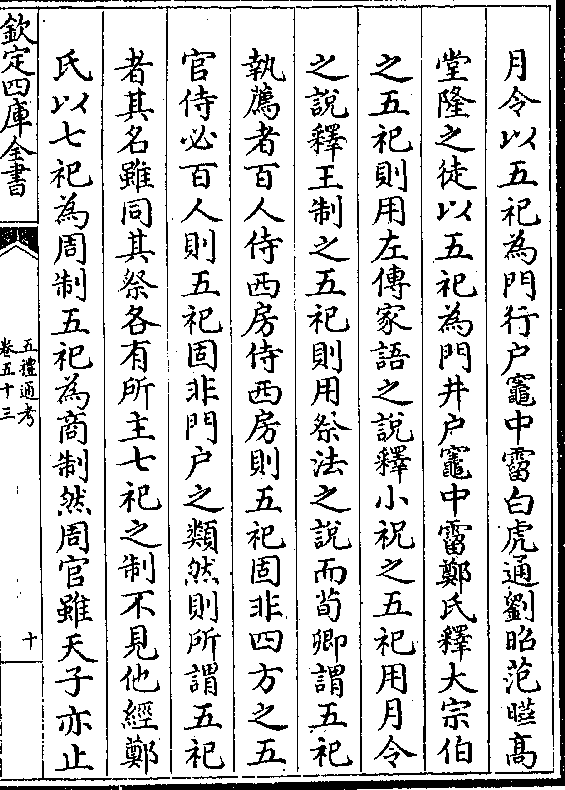 月令以五祀為門行户竈中霤白虎通劉昭范曄髙
堂隆之徒以五祀為門井户竈中霤鄭氏釋大宗伯
之五祀則用左傳家語之說釋小祝之五祀用月令
之說釋王制之五祀則用祭法之說而荀卿謂五祀
執薦者百人侍西房侍西房則五祀固非四方之五
官侍必百人則五祀固非門户之類然則所謂五祀
者其名雖同其祭各有所主七祀之制不見他經鄭
氏以七祀為周制五祀為商制然周官雖天子亦止
欽定四庫全書
五禮通考
卷五十三
十